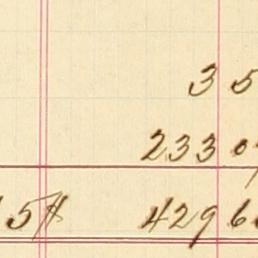 35
2330
5# 4296